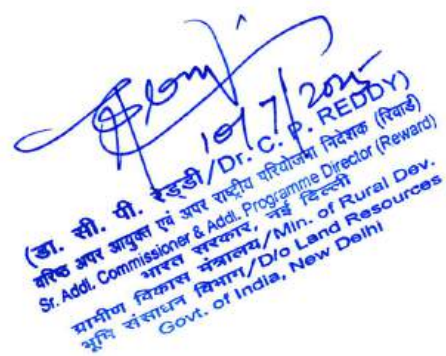 10/7/2025
(डा. सी. पी. रेड्डी/Dr. C. P. REDDY)
वरिष्ठ अपर आयुक्त एवं अपर राष्ट्रीय परियोजना निदेशक (रिवार्ड)
Sr. Addl. Commissioner & Addl. Programme Director (Reward)
भारत सरकार, नई दिल्ली
ग्रामीण विकास मंत्रालय/Min. of Rural Dev.
भूमि संसाधन विभाग/D/o Land Resources
Govt. of India, New Delhi